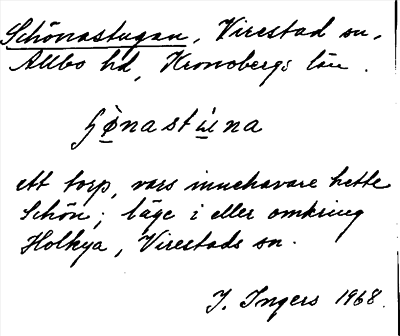 Schönastugan, Virestad sn,
Allbo hd, Kronobergs län.
ett torp, vars innehavare hette
Schön; läge i eller omkring
Holkya, Virestads sn.
I. Ingers 1968.